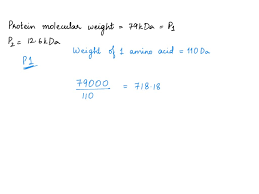 Protein molecular weight = 79kDa = P1
P2 = 12.6kDa
Weight of 1 amino acid = 110Da
P1
79000
110
= 718.18